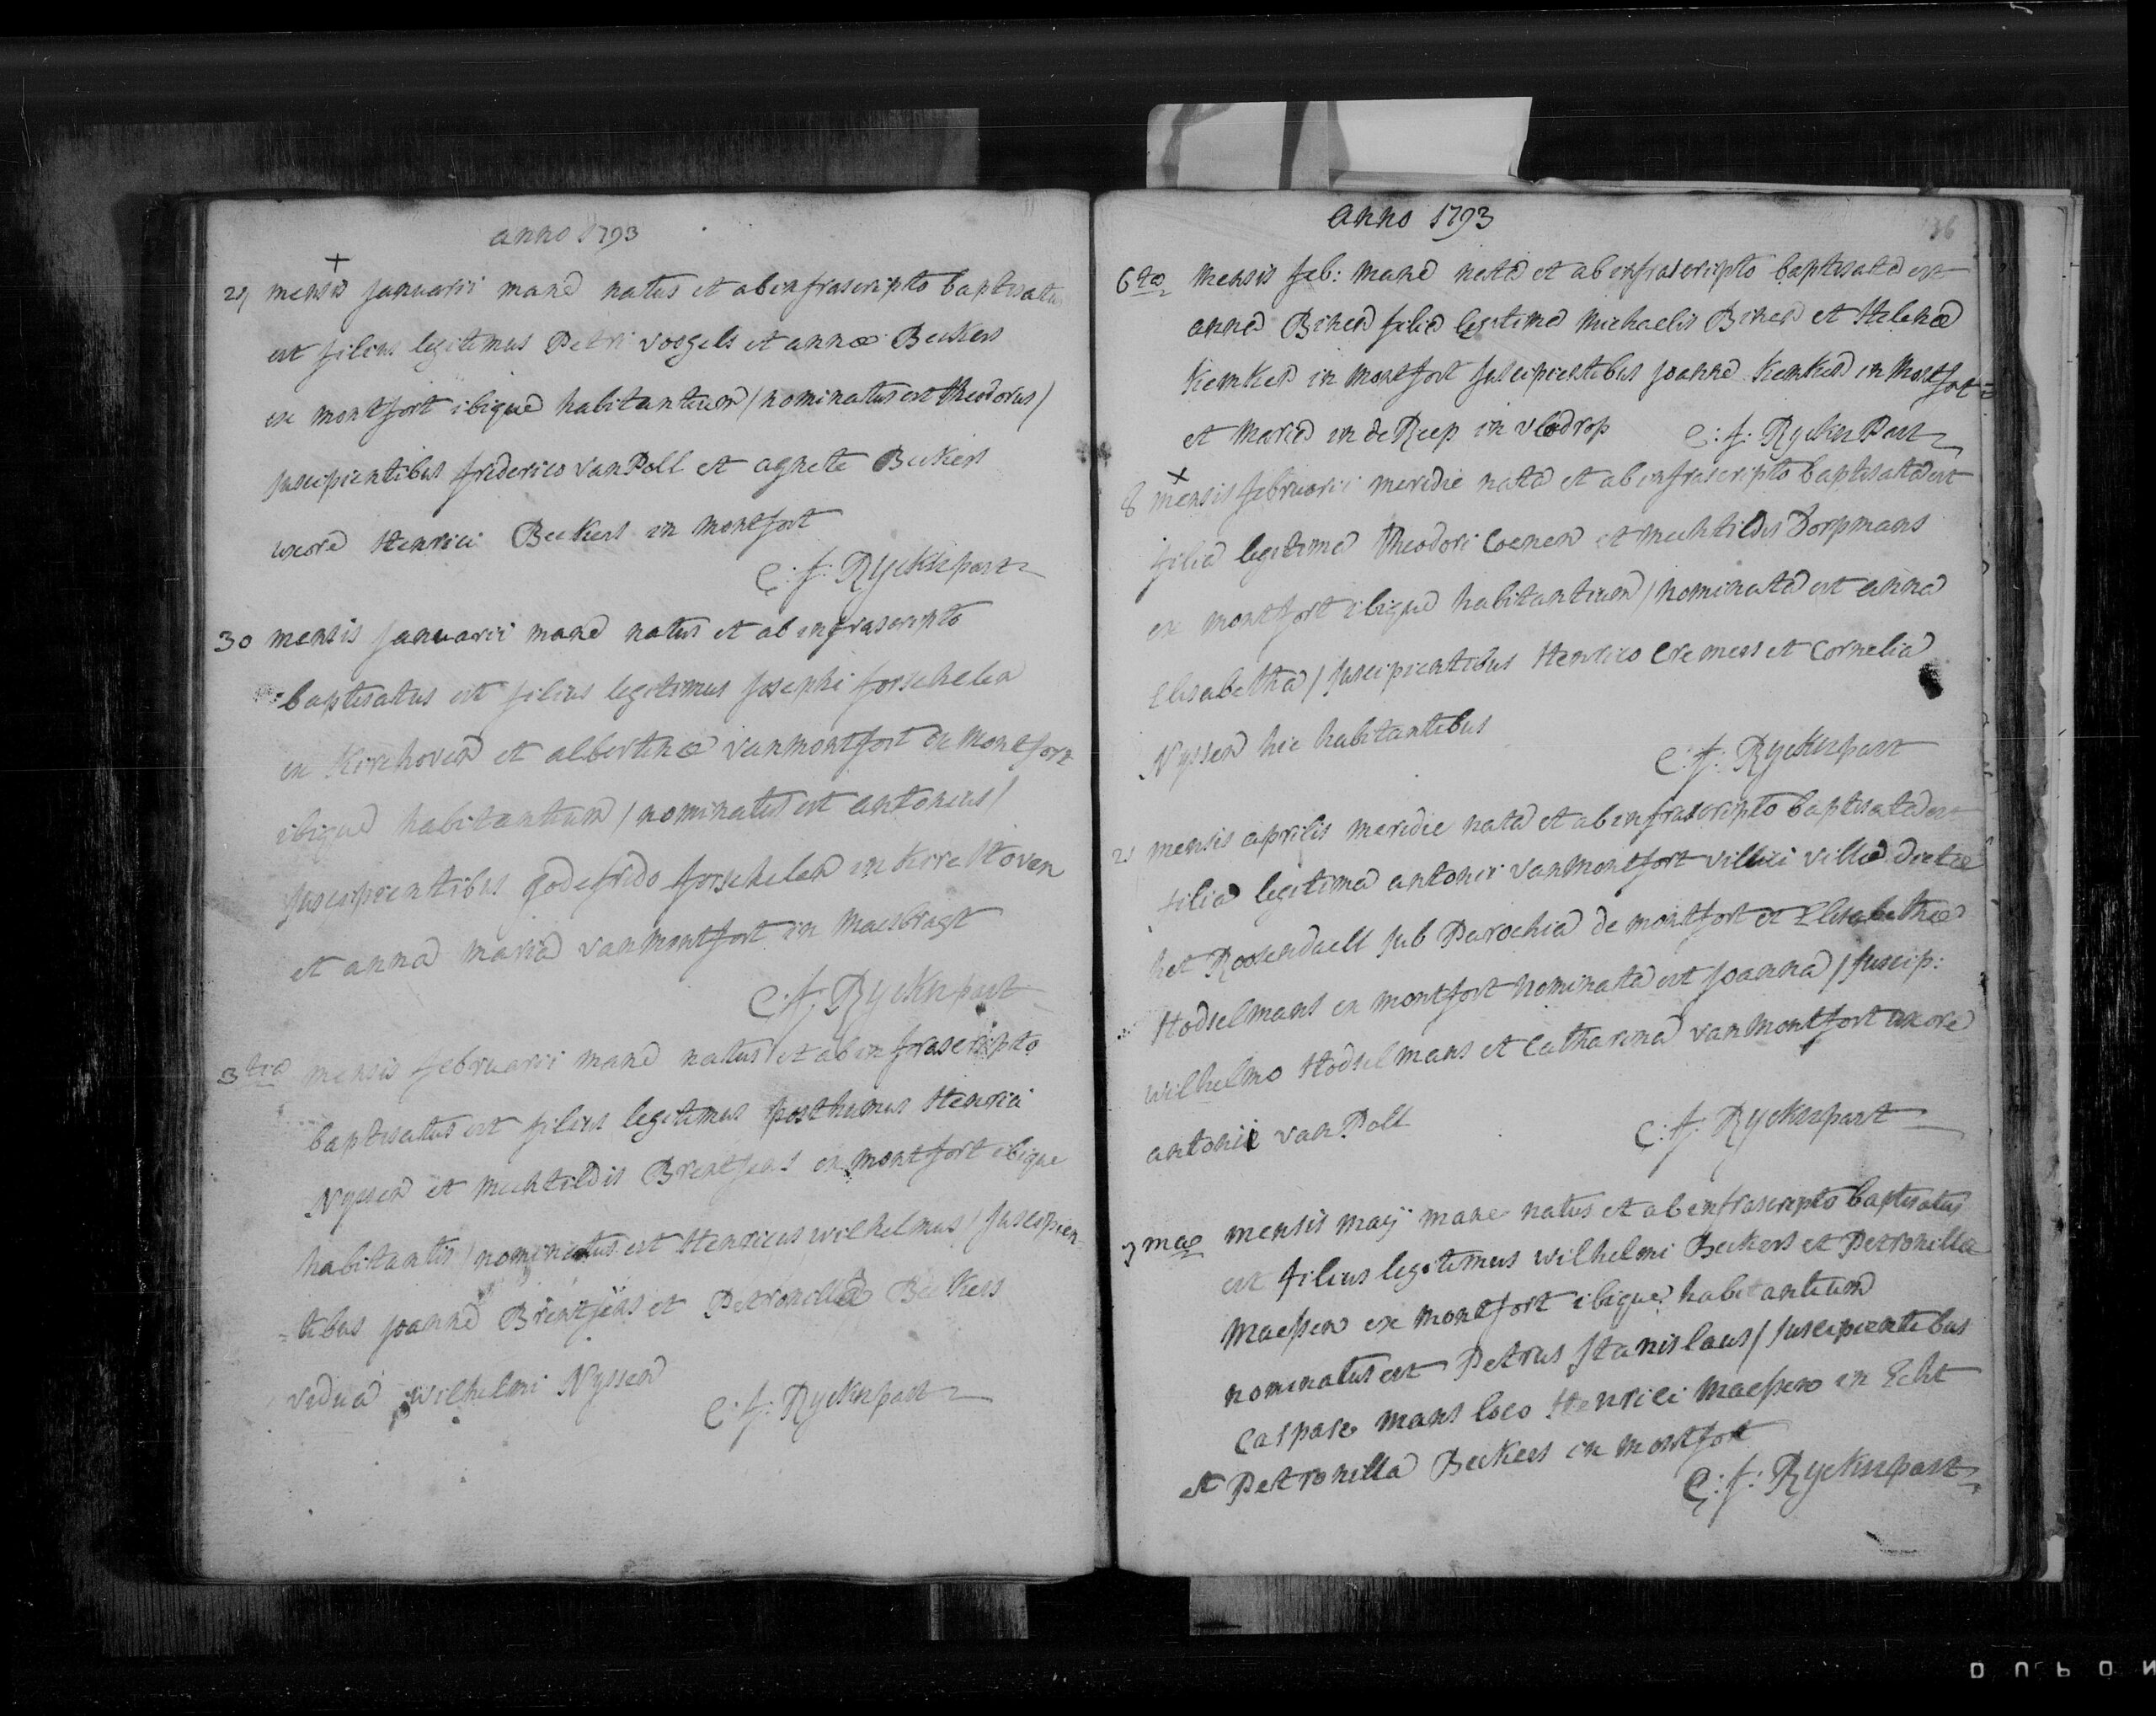 anno 1793
+
29 mensis januarii mane natus et ab infrascripto baptisatus
est filius legitimus Petri voogels et annæ Beckers
ex montfort ibique habitantium / nominatus est theodorus /
suscipientibus friderico van Poll et agnete Beckers
uxore Henrici Beckers in montfort
C: f: Ryckxpart
30 mensis januarii mane natus et ab infrascripto
baptisatus est filius legitimus josephi forschelen
ex Kirchoven et albertinæ van montfort ex montfort
ibique habitantium / nominatus est antonius /
suscipientibus godefrido forschelen in Kirchoven
et anna maria van montfort in Maesbragt
C: f: Ryckxpart
3tia mensis februarii mane natus et ab infrascripto
baptisatus est filius legitimus posthumus Henrici
Nyssen et mechtildis Brentjens ex montfort ibique
habitantis / nominatus est Henricus wilhelmus / suscipien-
-tibus joanne Brentjens et Petronilla Beckers
vidua wilhelmi Nyssen
C: f: Ryckxpart
anno 1793
6ta mensis feb: mane nata et ab infrascripto baptisata est
anna Binen filia legitima Michaelis Binen et Helenæ
Kemken in montfort suscipientibus joanne Kemken in montfort
et maria in de Reep in vlodrop C: f: Ryckxpart
+
8 mensis februarii meridie nata et ab infrascripto baptisata est
filia legitima theodori Coenen et mechtildis Dorpmans
ex montfort ibique habitantium / nominata est anna
Elisabetha / suscipientibus Henrico Cremers et Cornelia
Nyssen hic habitantibus
C: f: Ryckxpart
21 mensis aprilis meridie nata et ab infrascripto baptisata est
filia legitima antonii van montfort villici villæ dictæ
het Roosendaell sub Parochia de montfort et Elisabethæ
Hodselmans ex montfort nominata est joanna / suscip:
wilhelmo Hodselmans et Catharina van montfort uxore
antonii van Poll
C: f: Ryckxpart
mensis maij mane natus et ab infrascripto baptisatus
est filius legitimus wilhelmi Beckers et Petronillæ
Maessen ex montfort ibique habitantium
nominatus est Petrus stanislaus / suscipientibus
Caspare mans loco Henrici maessen in Echt
et Petronilla Beckers in montfort
C: f: Ryckxpart